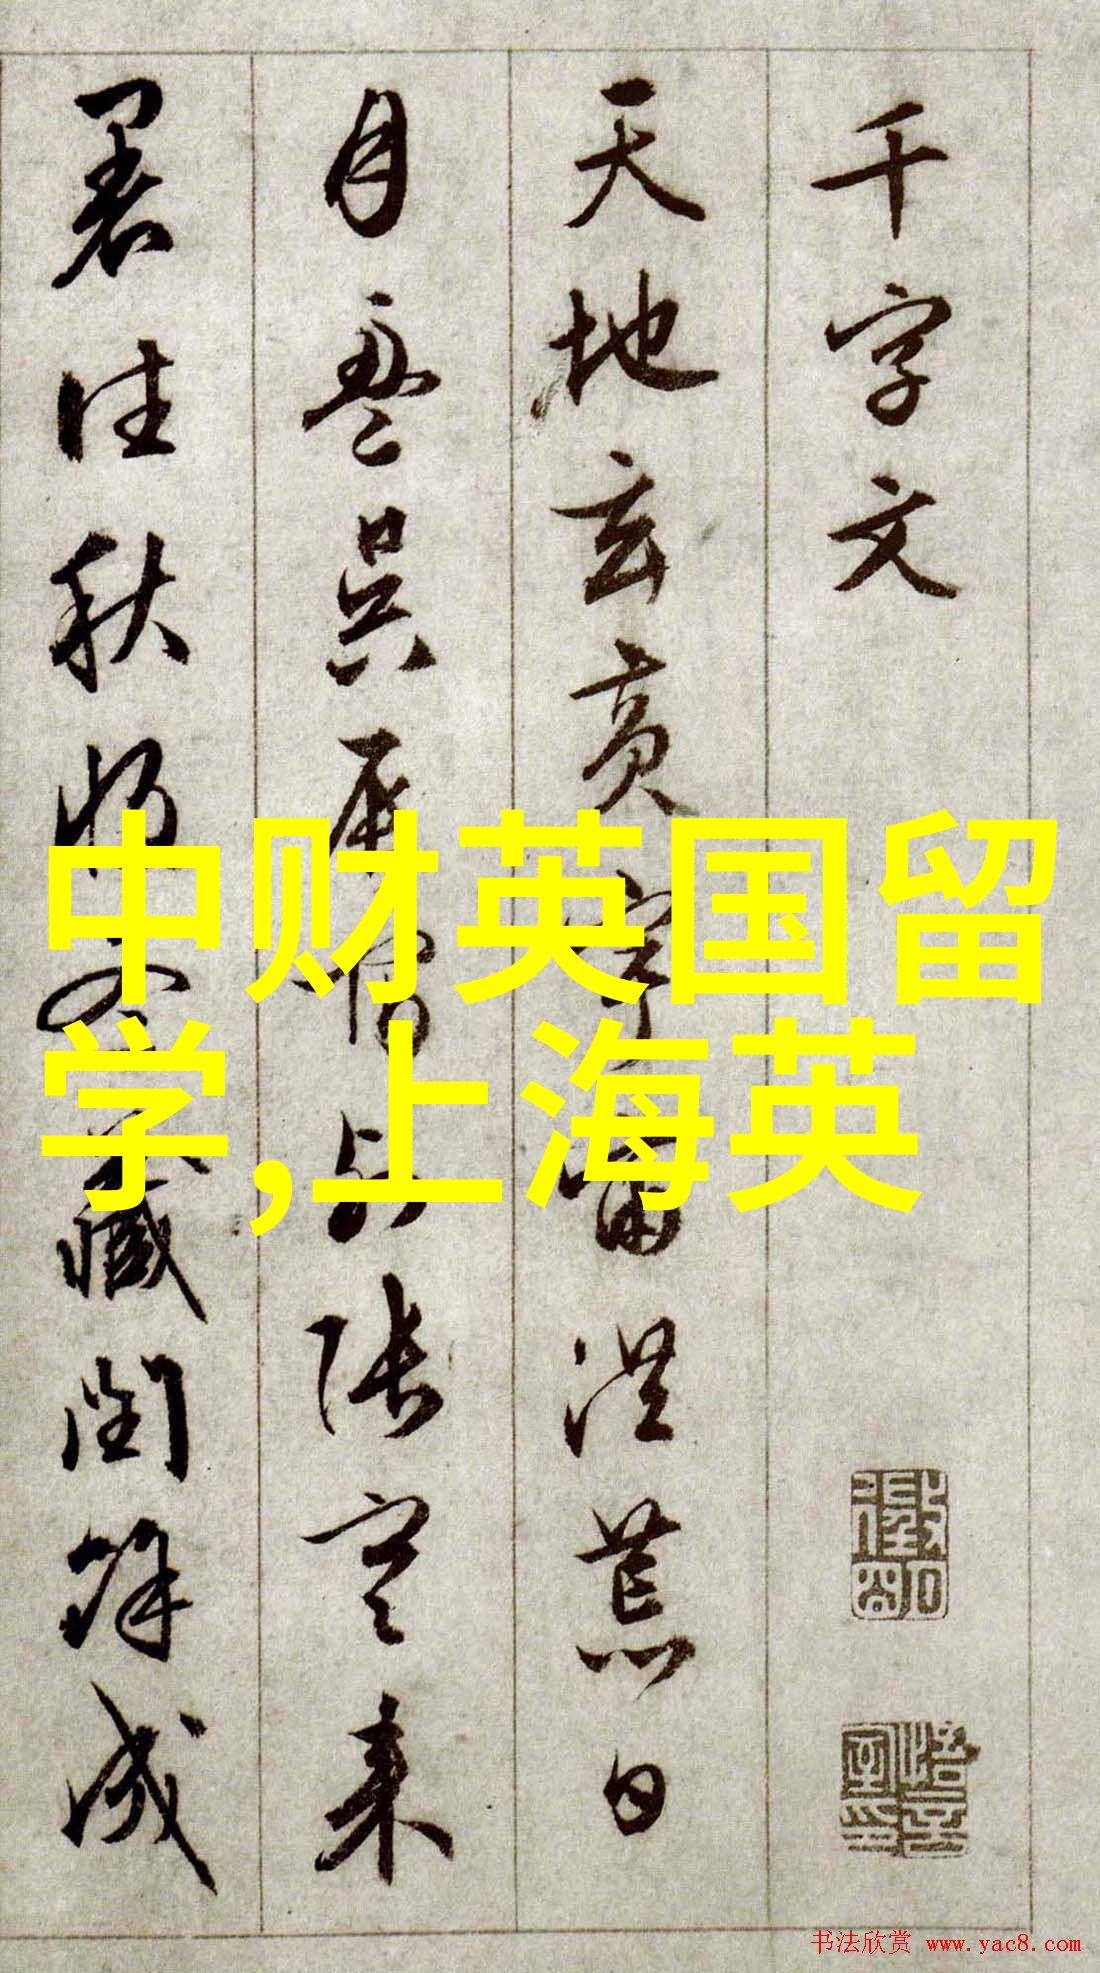 千字文
天地玄黄宇宙洪荒日
月盈昃辰宿列張寒来
暑往秋收冬藏閏餘成
中财英国留
学,上海英
书法欣赏 www.yac8.com